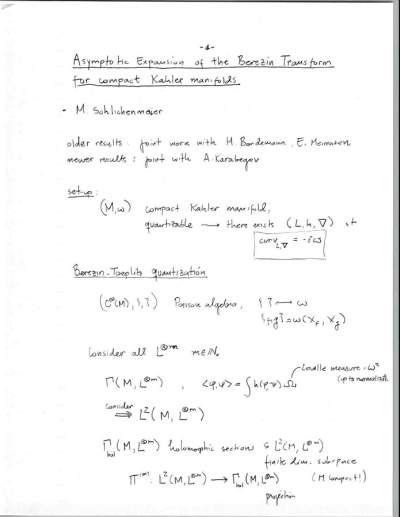 -1-
Asymptotic Expansion of the Berezin Transform
for compact Kahler manifolds
- M. Schlichenmaier
older results: joint work with M. Bordemann, E. Meinrenken
newer results: joint with A. Karabegov
set-up:
(M,ω) compact Kahler manifold,
quantizable → there exists (L, h, ∇) st
curv_{L,∇} = -iω
Berezin-Toeplitz quantization
(C^∞(M), {,}) Poisson algebra, { } ← ω
{f,g} = ω(X_f, X_g)
Consider all L^{⊗m} m∈ℕ.
Γ(M, L^{⊗m}) , <φ,ψ> = ∫h(φ,ψ) Ω
Liouville measure = ω^n
(up to normalizat.
consider
⇒ L²(M, L^{⊗m})
Γ_{hol}(M, L^{⊗m}) holomorphic sections ⊆ L²(M, L^{⊗m})
finite dim. subspace
Π^{(m)}: L²(M, L^{⊗m}) → Γ_{hol}(M, L^{⊗m}) (M compact!)
projection